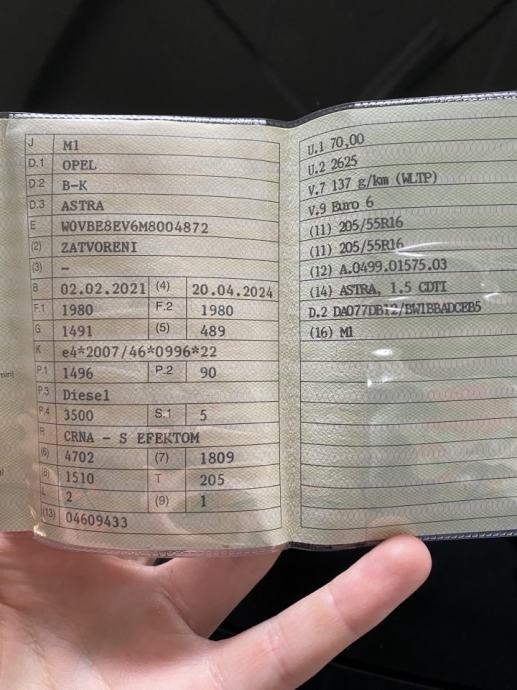 J M1
D.1 OPEL
D.2 B-K
D.3 ASTRA
E W0VBE8EV6M8004872
(2) ZATVORENI
(3) –
B 02.02.2021 (4) 20.04.2024
F.1 1980 F.2 1980
G 1491 (5) 489
K e4*2007/46*0996*22
P.1 1496 P.2 90
P.3 Diesel
P.4 3500 S.1 5
R CRNA - S EFEKTOM
(6) 4702 (7) 1809
(8) 1510 T 205
L 2 (9) 1
(13) 04609433
U.1 70,00
U.2 2625
V.7 137 g/km (WLTP)
V.9 Euro 6
(11) 205/55R16
(11) 205/55R16
(12) A.0499.01575.03
(14) ASTRA, 1.5 CDTI
D.2 DA077DB12/BW1BBADCEB5
(16) M1